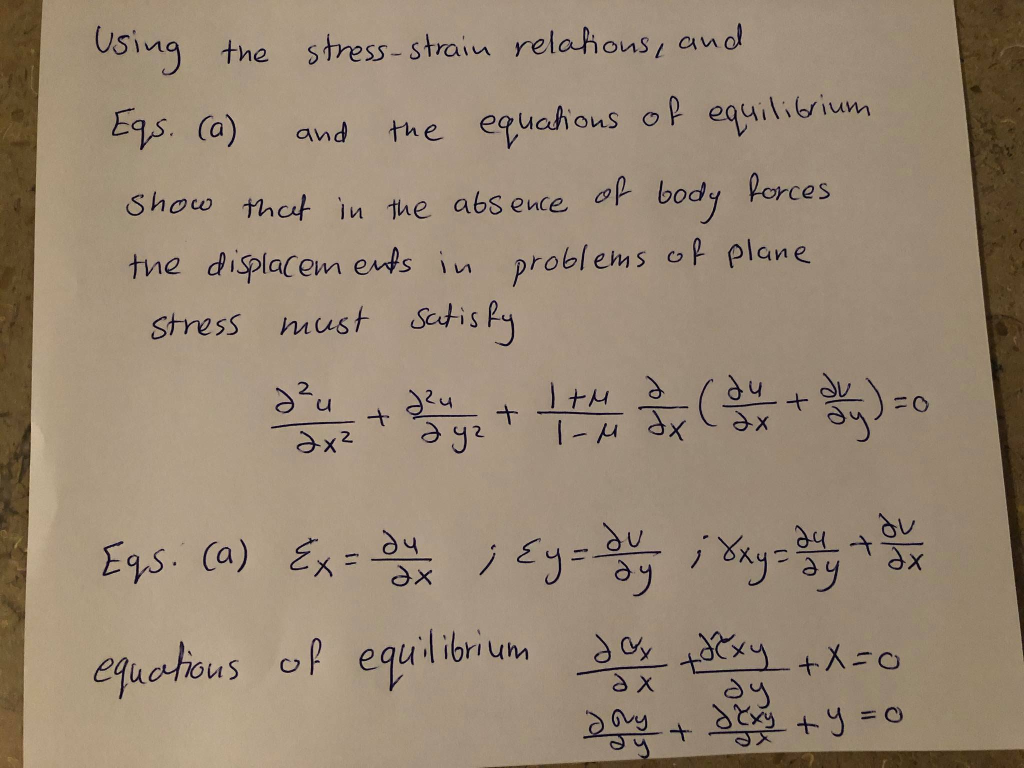 Using the stress-strain relations, and
Eqs. (a) and the equations of equilibrium
show that in the absence of body forces
the displacements in problems of plane
stress must satisfy
∂²u/∂x² + ∂²u/∂y² + (1+μ)/(1-μ) ∂/∂x (∂u/∂x + ∂v/∂y) = 0
Eqs. (a) εx = ∂u/∂x ; εy = ∂v/∂y ; γxy = ∂u/∂y + ∂v/∂x
equations of equilibrium ∂σx/∂x + ∂τxy/∂y + X = 0
∂σy/∂y + ∂τxy/∂x + y = 0